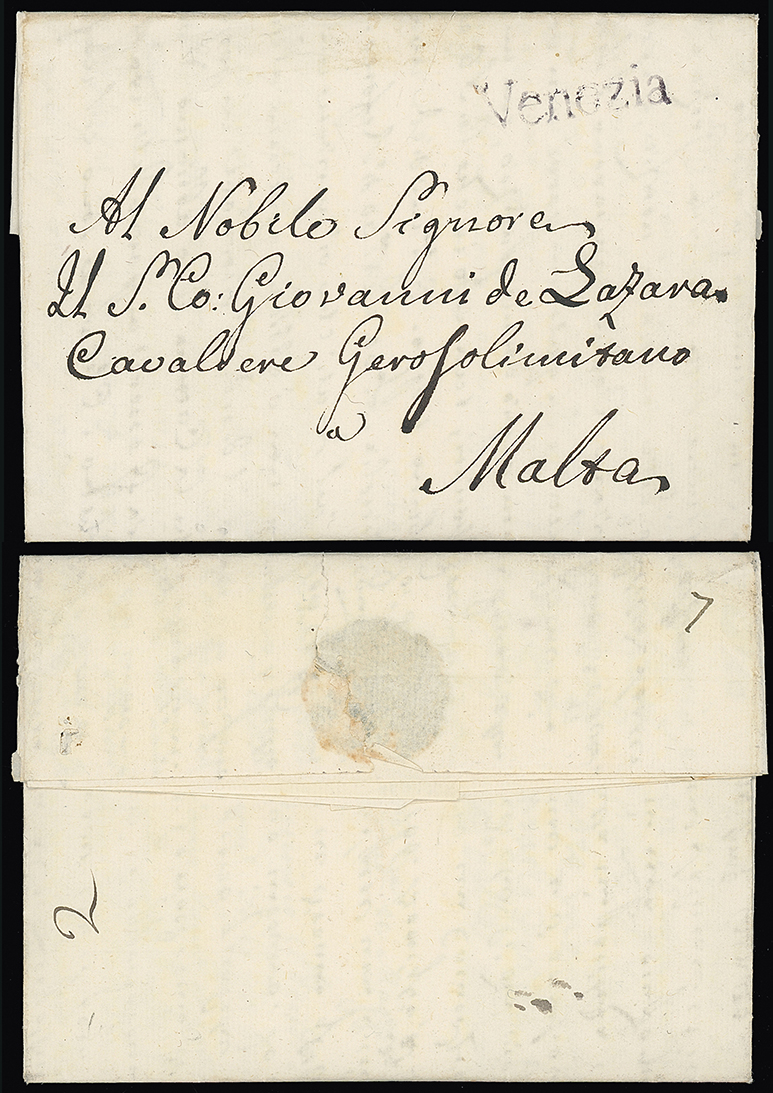 Venezia
Al Nobile Signore
Il S.r Co: Giovanni de Lazara
Cavaliere Gerosolimitano
a
Malta
7
2